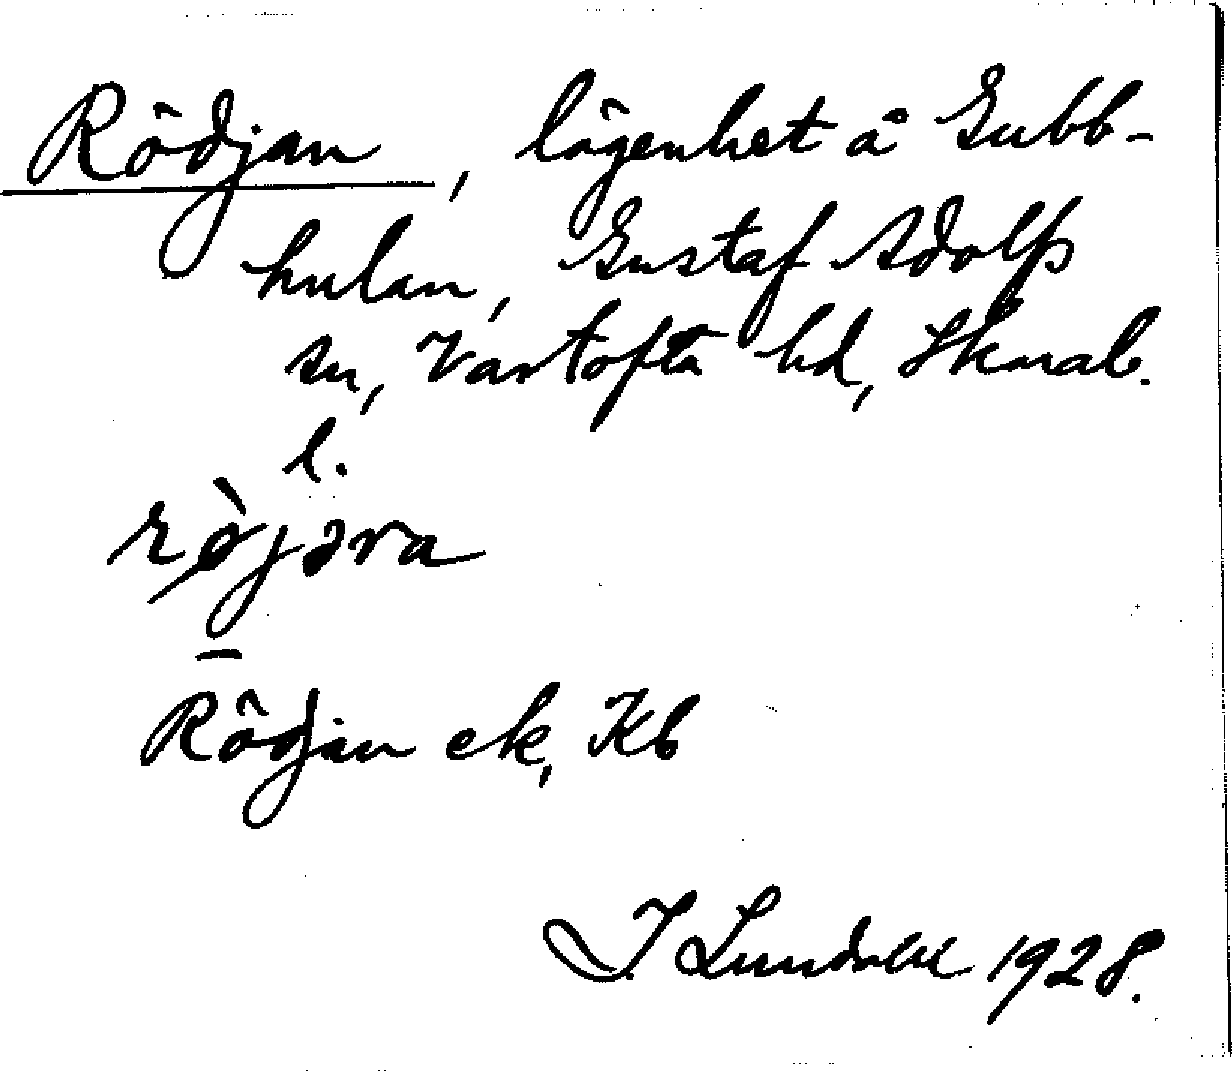 Rödjan, lägenhet å Gubb-
hulan, Gustaf Adolfs
sn, Vartofta hd, Skarab.
l.
rø̀jəna
Rödjan ek, Kb
I Lundahl 1928.